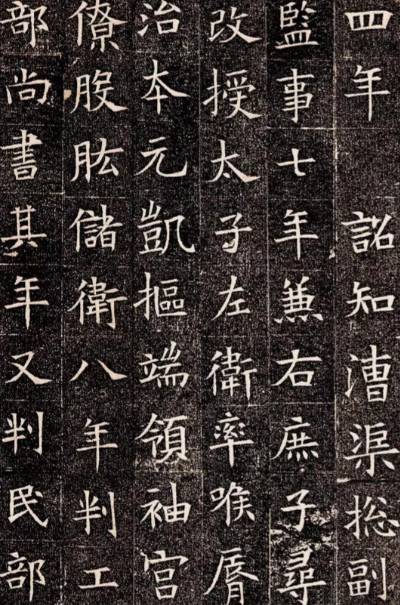 四年　詔知漕渠捴副
監事七年兼右庶子尋
改授太子左衛率喉脣
治夲元凱摳端領袖宮
僚股肱儲衛八年判工
部尚書其年又判民部